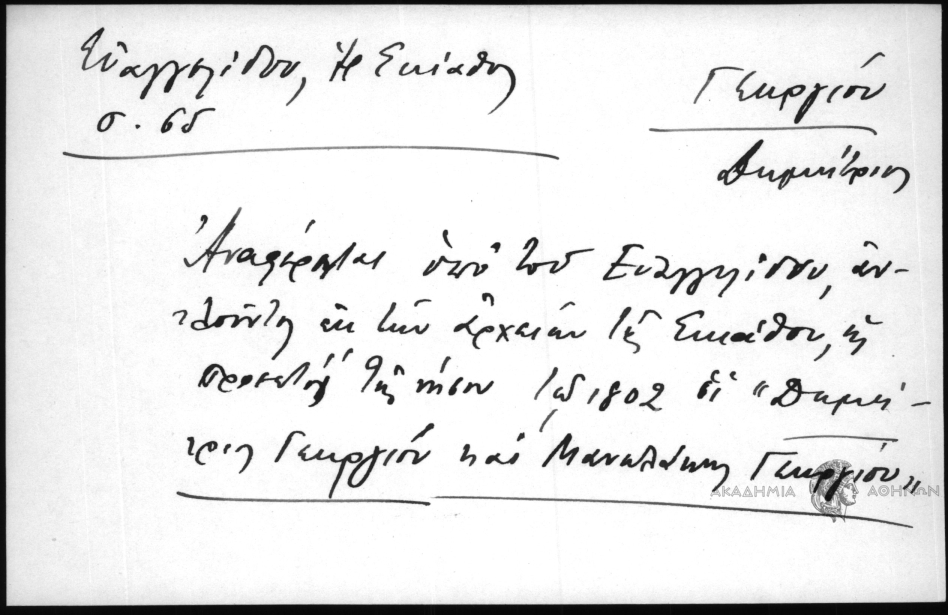 Εὐαγγελίδου, Ἡ Σκίαθος
σ. 65
Γεωργίου
Δημήτριος
Ἀναφέρεται ὑπὸ τοῦ Εὐαγγελίδου, ἀν-
τλοῦντος ἐκ τῶν ἀρχείων τῆς Σκιάθου, ὡς
προεστοὶ τῆς νήσου τῷ 1802 οἱ "Δημή-
τρις Γεωργίου καὶ Μανωλάκης Γεωργίου"
ΑΚΑΔΗΜΙΑ ΑΘΗΝΩΝ